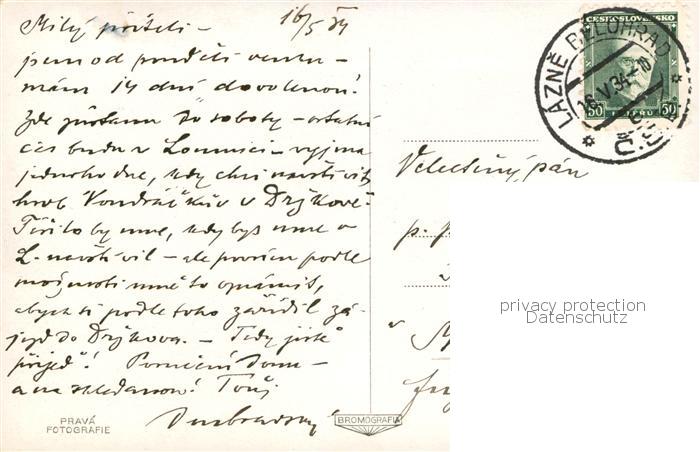 16/5 34
Milý příteli –
jsem od pondělí venku –
mám 14 dní dovolenou!
Zde zůstanu do soboty – ostatní
čas budu v Lomnici – vyjma
jednoho dne, kdy chci navštívit
hrob Vondráčkův v Držkově.
Těšilo by mne, kdybys mne v
L. navštívil – ale prosím podle
možnosti mně to oznámit,
abych si podle toho zařídil zá-
jezd do Držkova. – Tedy jistě
přijeď! Poručení domu –
a na shledanou! Tvůj
PRAVÁ
FOTOGRAFIE
BROMOGRAFIA
ČESKOSLOVENSKO
50 HALÉŘŮ 50
LÁZNĚ BĚLOHRAD
16.V.34-10
ČSR
Velectěný pán
p. p.
privacy protection
Datenschutz